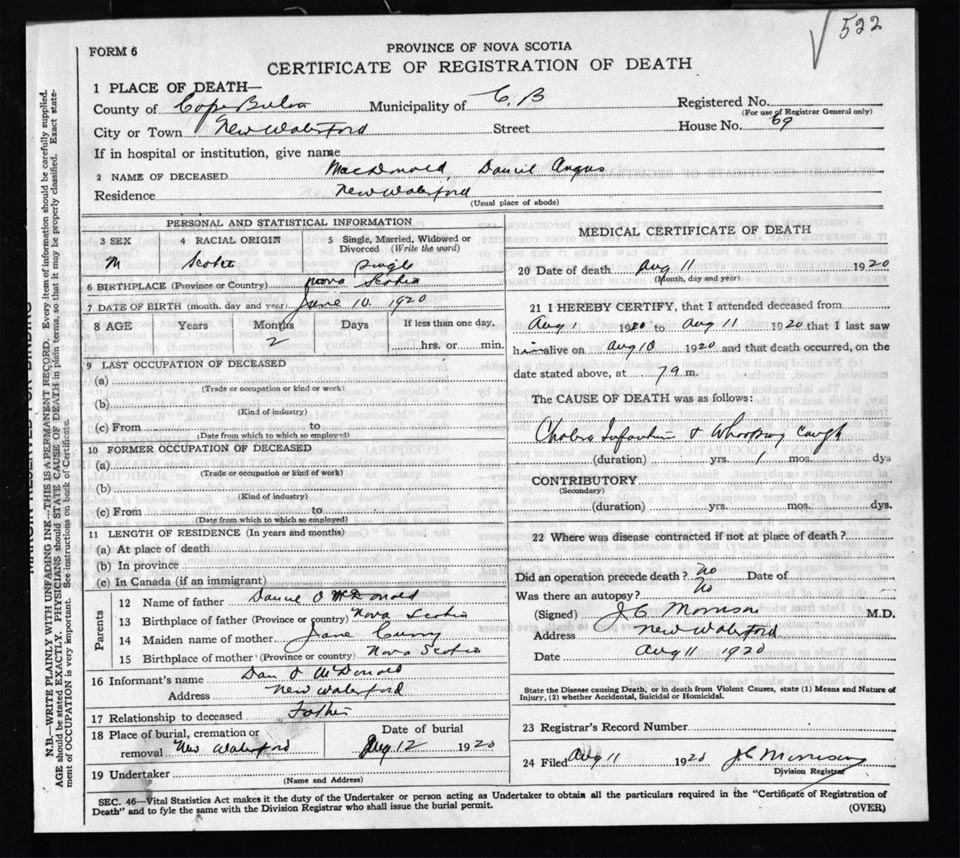 522
FORM 6
PROVINCE OF NOVA SCOTIA
CERTIFICATE OF REGISTRATION OF DEATH
1 PLACE OF DEATH—
County of Cape Breton Municipality of C. B Registered No.
(For use of Registrar General only)
City or Town New Waterford Street House No. 69
If in hospital or institution, give name
2 NAME OF DECEASED MacDonald, Daniel Angus
Residence New Waterford
(Usual place of abode)
PERSONAL AND STATISTICAL INFORMATION
3 SEX 4 RACIAL ORIGIN 5 Single, Married, Widowed or Divorced (Write the word)
M Scotch Single
6 BIRTHPLACE (Province or Country) Nova Scotia
7 DATE OF BIRTH (month, day and year) June 10. 1920
8 AGE Years Months Days If less than one day,
2 hrs. or min.
9 LAST OCCUPATION OF DECEASED
(a)
(Trade or occupation or kind or work)
(b)
(Kind of industry)
(c) From to
(Date from which to which so employed)
10 FORMER OCCUPATION OF DECEASED
(a)
(Trade or occupation or kind of work)
(b)
(Kind of industry)
(c) From to
(Date from which to which so employed)
11 LENGTH OF RESIDENCE (In years and months)
(a) At place of death
(b) In province
(c) In Canada (if an immigrant)
Parents
12 Name of father Daniel McDonald
13 Birthplace of father (Province or country) Nova Scotia
14 Maiden name of mother Jane Curry
15 Birthplace of mother (Province or country) Nova Scotia
16 Informant's name Dan McDonald
Address New Waterford
17 Relationship to deceased Father
18 Place of burial, cremation or Date of burial
removal New Waterford Aug 12 1920
19 Undertaker
(Name and Address)
MEDICAL CERTIFICATE OF DEATH
20 Date of death Aug 11 1920
(Month, day and year)
21 I HEREBY CERTIFY, that I attended deceased from
Aug 1 1920 to Aug 11 1920 that I last saw
him alive on Aug 10 1920 and that death occurred, on the
date stated above, at m.
The CAUSE OF DEATH was as follows:
Cholera Infantum & Whooping Cough
(duration) yrs. 1 mos. dys
CONTRIBUTORY
(Secondary)
(duration) yrs. mos. dys.
22 Where was disease contracted if not at place of death?
Did an operation precede death? No Date of
Was there an autopsy? No
(Signed) J C Morrison M.D.
Address New Waterford
Date Aug 11 1920
State the Disease causing Death, or in death from Violent Causes, state (1) Means and Nature of
Injury, (2) whether Accidental, Suicidal or Homicidal.
23 Registrar's Record Number
24 Filed Aug 11 1920 J C Morrison
Division Registrar
SEC. 46—Vital Statistics Act makes it the duty of the Undertaker or person acting as Undertaker to obtain all the particulars required in the "Certificate of Registration of
Death" and to fyle the same with the Division Registrar who shall issue the burial permit. (OVER)
MARGIN RESERVED FOR BINDING
N.B.—WRITE PLAINLY WITH UNFADING INK—THIS IS A PERMANENT RECORD. Every item of information should be carefully supplied.
AGE should be stated EXACTLY. PHYSICIANS should STATE CAUSE OF DEATH in plain terms, so that it may be properly classified. Exact state-
ment of OCCUPATION is very important. See instructions on back of Certificate.